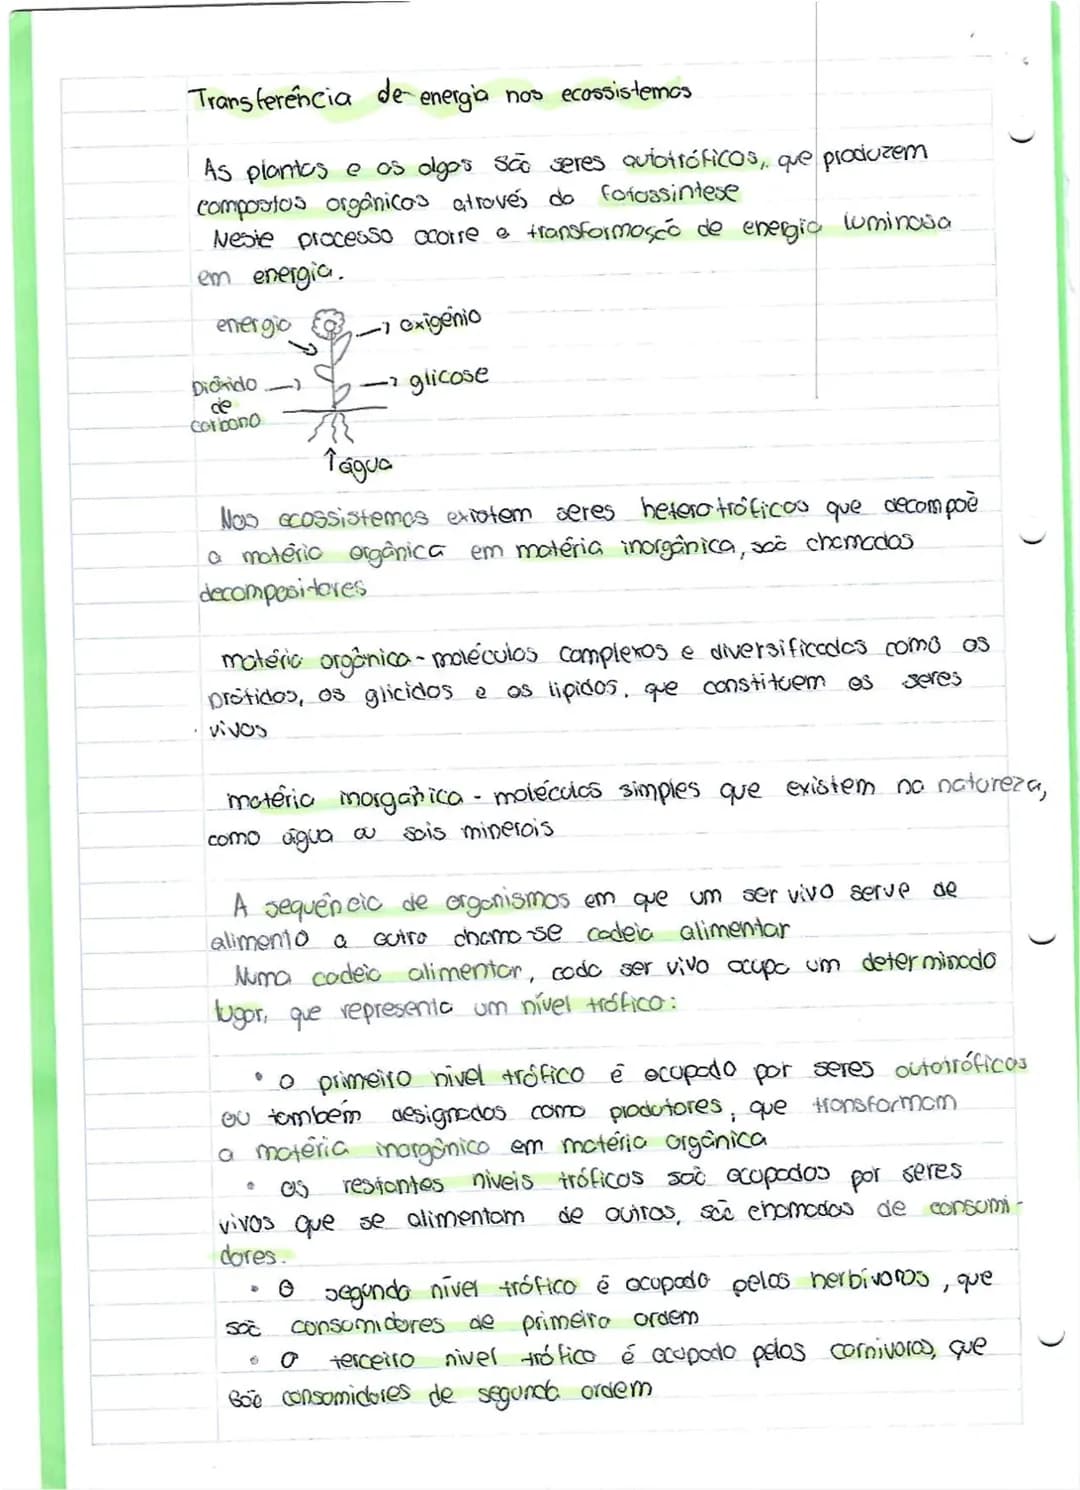 Transferência de energia nos ecossistemas
As plantas e as algas são seres autotróficos, que produzem
compostos orgânicos através da fotossintese
Neste processo ocorre a transformação de energia luminosa
em energia.
energia → oxigénio
Dióxido → → glicose
de
carbono
↑ água
Nos ecossistemas existem seres heterotróficos que decompoê
a matéria orgânica em matéria inorgânica, saõ chamados
decompositores
matéria orgânica - moléculas complexas e diversificadas como os
prótidos, os glicidos e os lipidos, que constituem os seres
vivos
matéria inorgânica - moléculas simples que existem na natureza,
como água ou sais minerais
A sequência de organismos em que um ser vivo serve de
alimento a outro chama-se cadeia alimentar
Numa cadeia alimentar, cada ser vivo ocupa um determinado
lugar, que representa um nível trófico:
• O primeiro nivel trófico é ocupado por seres autotróficos
ou também designados como produtores, que transformam
a matéria inorgânica em matéria orgânica
• os restantes niveis tróficos saõ ocupados por seres
vivos que se alimentam de outros, saõ chamados de consumi-
dores.
• O segundo nível trófico é ocupado pelos herbívoros, que
saõ consumidores de primeira ordem
• O terceiro nivel trófico é ocupado pelos carnivoros, que
saõ consumidores de segunda ordem